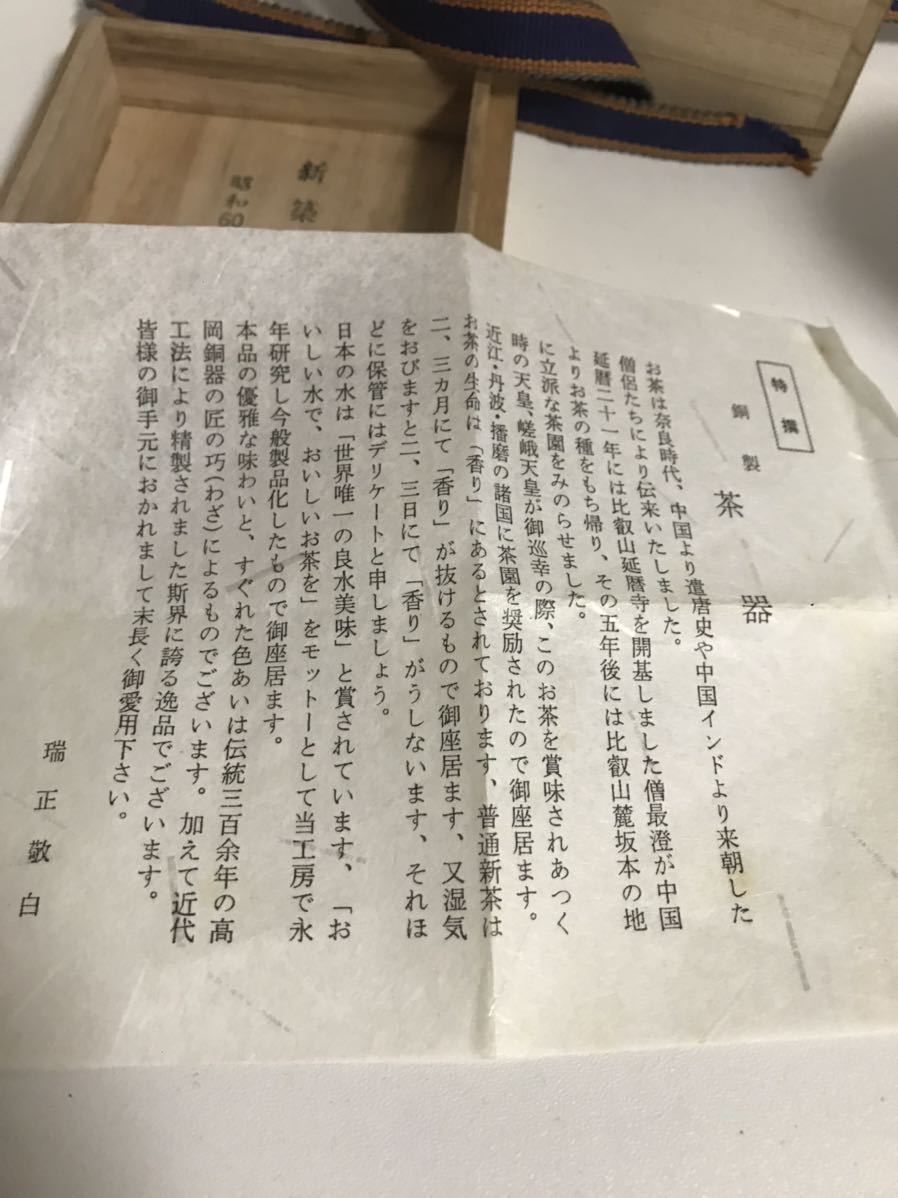 新築
昭和60
特撰
銅製 茶器
お茶は奈良時代、中国より遣唐史や中国インドより来朝した
僧侶たちにより伝来いたしました。
延暦二十一年には比叡山延暦寺を開基しました僧最澄が中国
よりお茶の種をもち帰り、その五年後には比叡山麓坂本の地
に立派な茶園をみのらせました。
時の天皇、嵯峨天皇が御巡幸の際、このお茶を賞味されあつく
近江・丹波・播磨の諸国に茶園を奨励されたので御座居ます。
お茶の生命は「香り」にあるとされております、普通新茶は
二、三カ月にて「香り」が抜けるもので御座居ます、又湿気
をおびますと二、三日にて「香り」がうしないます、それほ
どに保管にはデリケートと申しましょう。
日本の水は「世界唯一の良水美味」と賞されています、「お
いしい水で、おいしいお茶を」をモットーとして当工房で永
年研究し今般製品化したもので御座居ます。
本品の優雅な味わいと、すぐれた色あいは伝統三百余年の高
岡銅器の匠の巧(わざ)によるものでございます。加えて近代
工法により精製されました斯界に誇る逸品でございます。
皆様の御手元におかれまして末長く御愛用下さい。
瑞正敬白